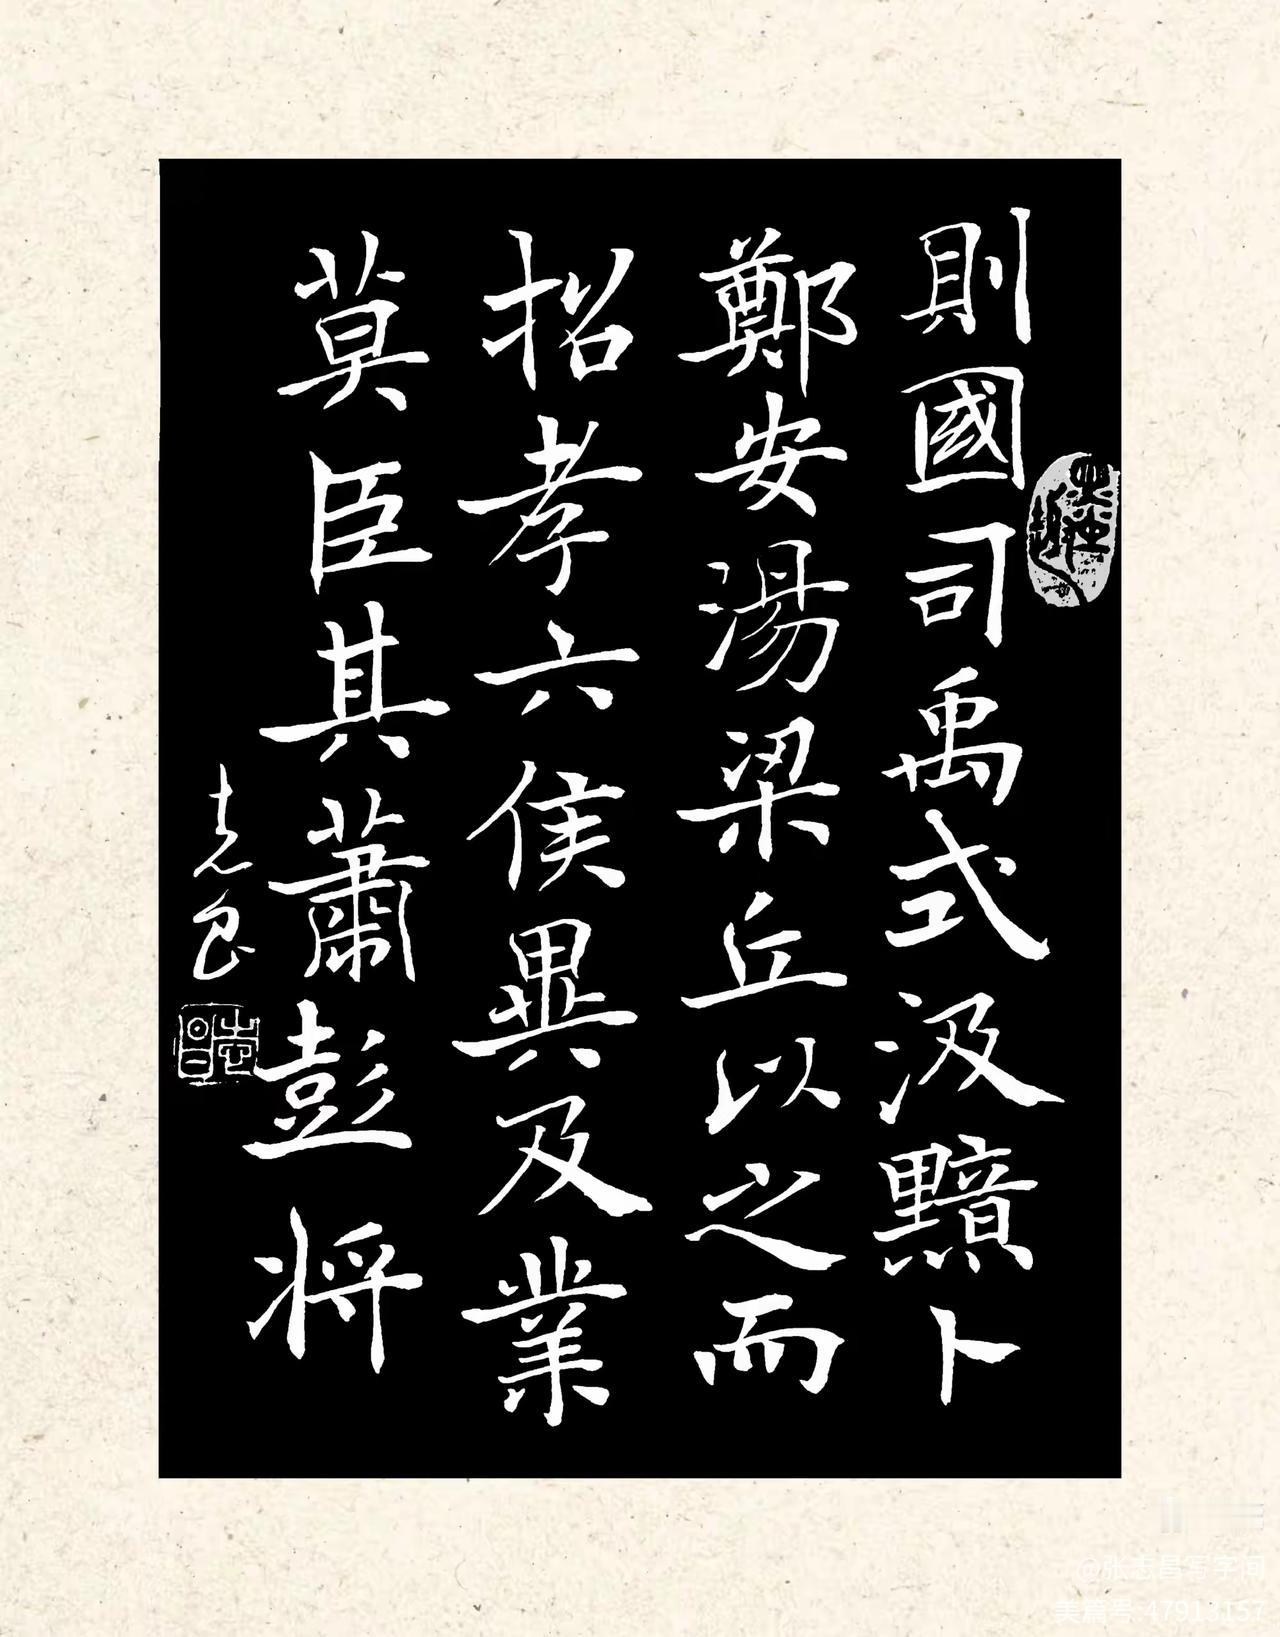 則國司禹式汲黯卜
鄭安湯梁丘以之而
招孝六侯異及業
莫臣其蕭彭將
志昌
@张志昌写字间
美篇号:47913157